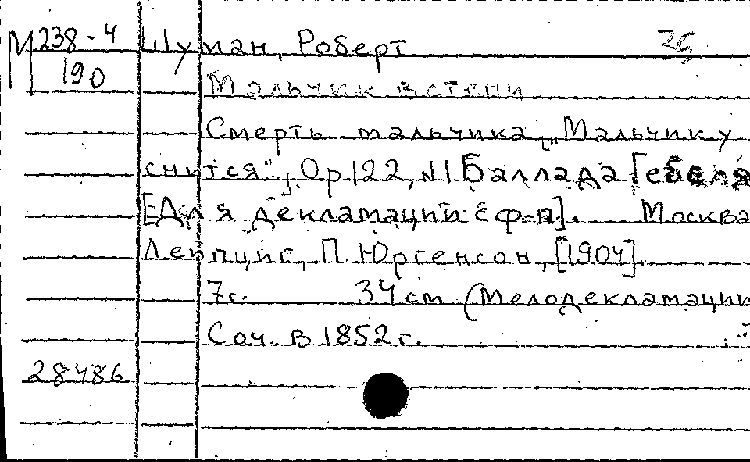 М 238-4 Шуман, Роберт
190 Мальчик в степи
Смерть мальчика „Мальчику
снится", Op 122, №1 Баллада Гебеля
[Для декламации с ф-п]. Москва
Лейпциг, П. Юргенсон, [1904].
7с. 34 см (Мелодекламации
Соч. в 1852 г.
28486